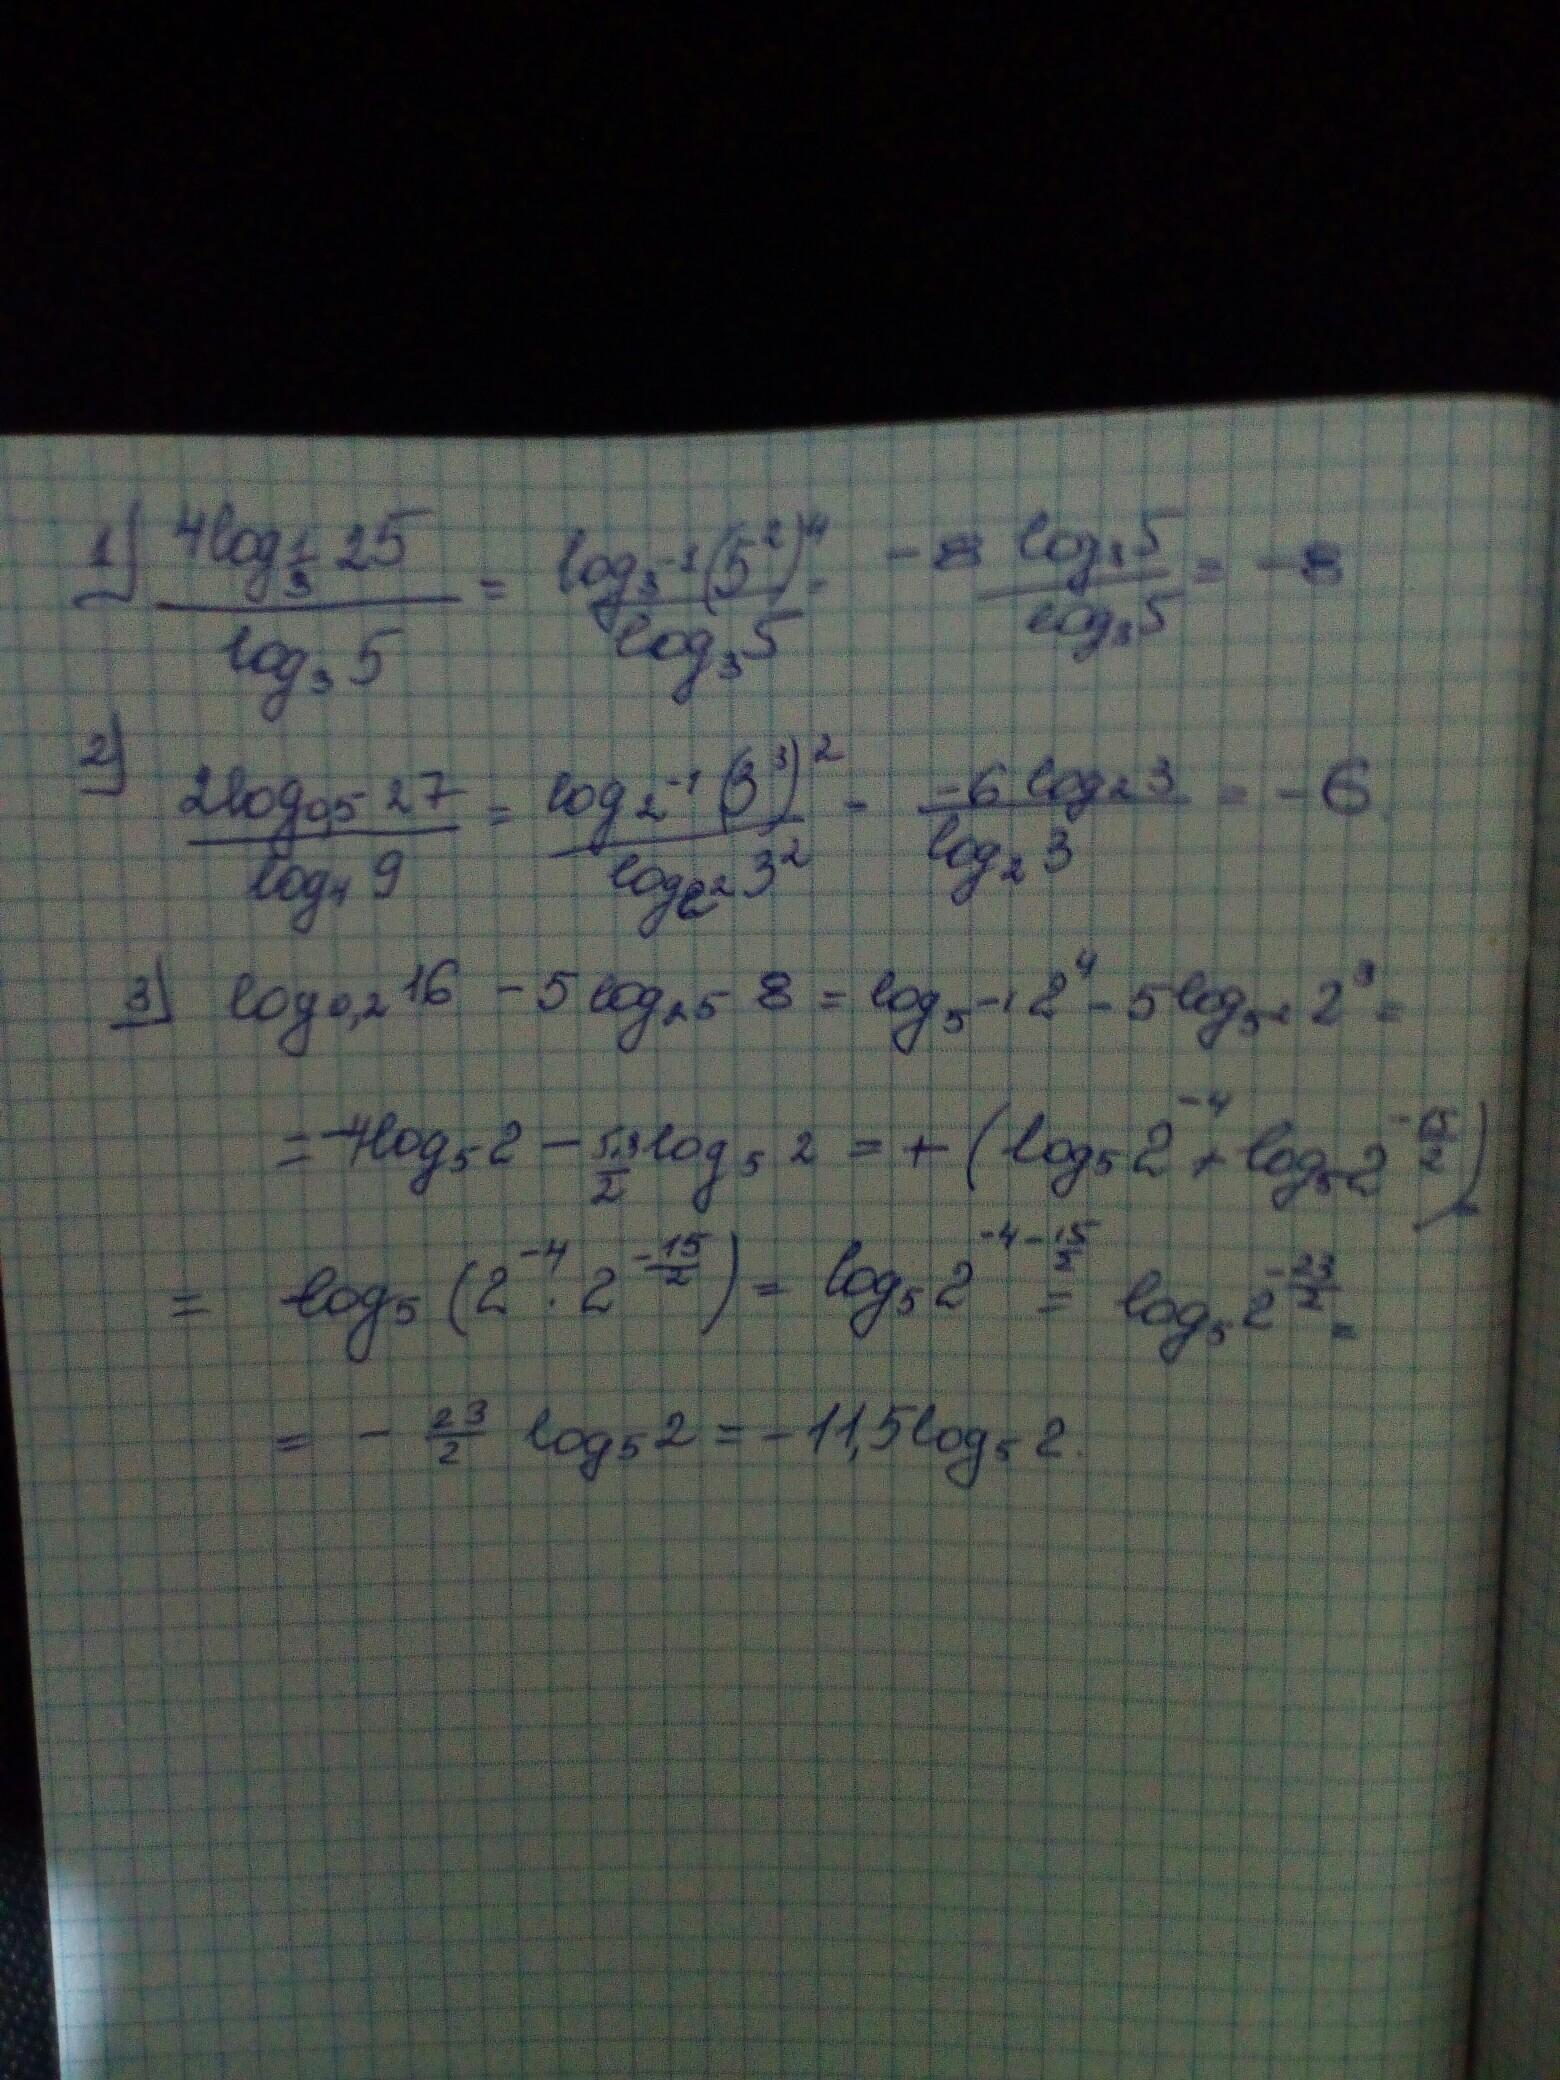 1) \frac{4log_{\frac{1}{3}} 25}{log_3 5} = \frac{log_{3^{-1}} (5^2)^4}{log_3 5} = -8 \frac{log_3 5}{log_3 5} = -8
2) \frac{2log_{0,5} 27}{log_4 9} = \frac{log_{2^{-1}} (3^3)^2}{log_{2^2} 3^2} = \frac{-6 log_2 3}{log_2 3} = -6
3) log_{0,2} 16 - 5 log_{25} 8 = log_{5^{-1}} 2^4 - 5 log_{5^2} 2^3 =
= -4log_5 2 - \frac{5·3}{2} log_5 2 = + (log_5 2^{-4} + log_5 2^{-\frac{15}{2}}) =
= log_5 (2^{-4} · 2^{-\frac{15}{2}}) = log_5 2^{-4-\frac{15}{2}} = log_5 2^{-\frac{23}{2}} =
= - \frac{23}{2} log_5 2 = -11,5 log_5 2.